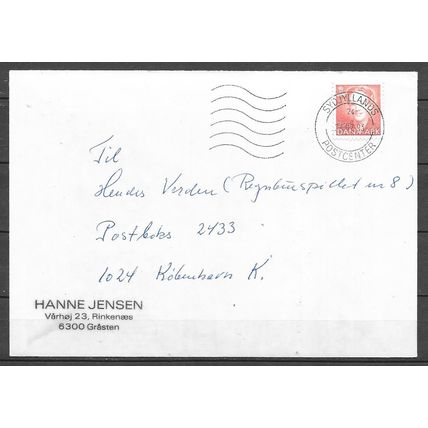 SYDJYLLANDS
POSTCENTER
DANMARK
Til
Hendes Verden (Regnbuespillet nr 8)
Postboks 2433
1024 København K.
HANNE JENSEN
Vårhøj 23, Rinkenæs
6300 Gråsten